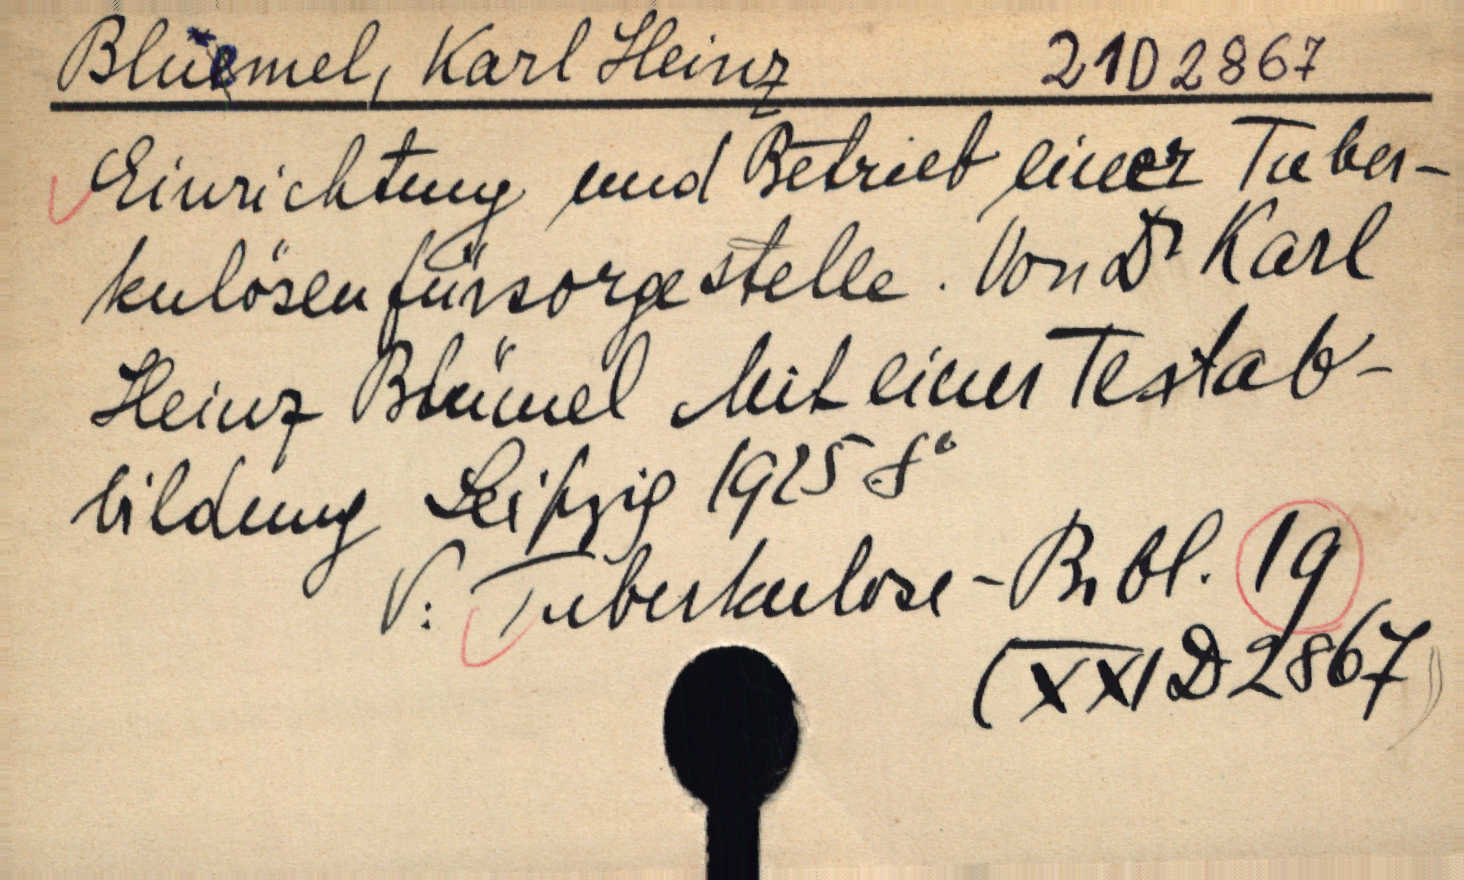 Blüemel, Karl Heinz 21D2867
Einrichtung und Betrieb einer Tuber-
kulösenfürsorgestelle. Von Dr Karl
Heinz Blümel Mit einer Textab-
bildung Leipzig 1925 8°
V: Tuberkulose-Bibl. 19
(XXI D 2867)